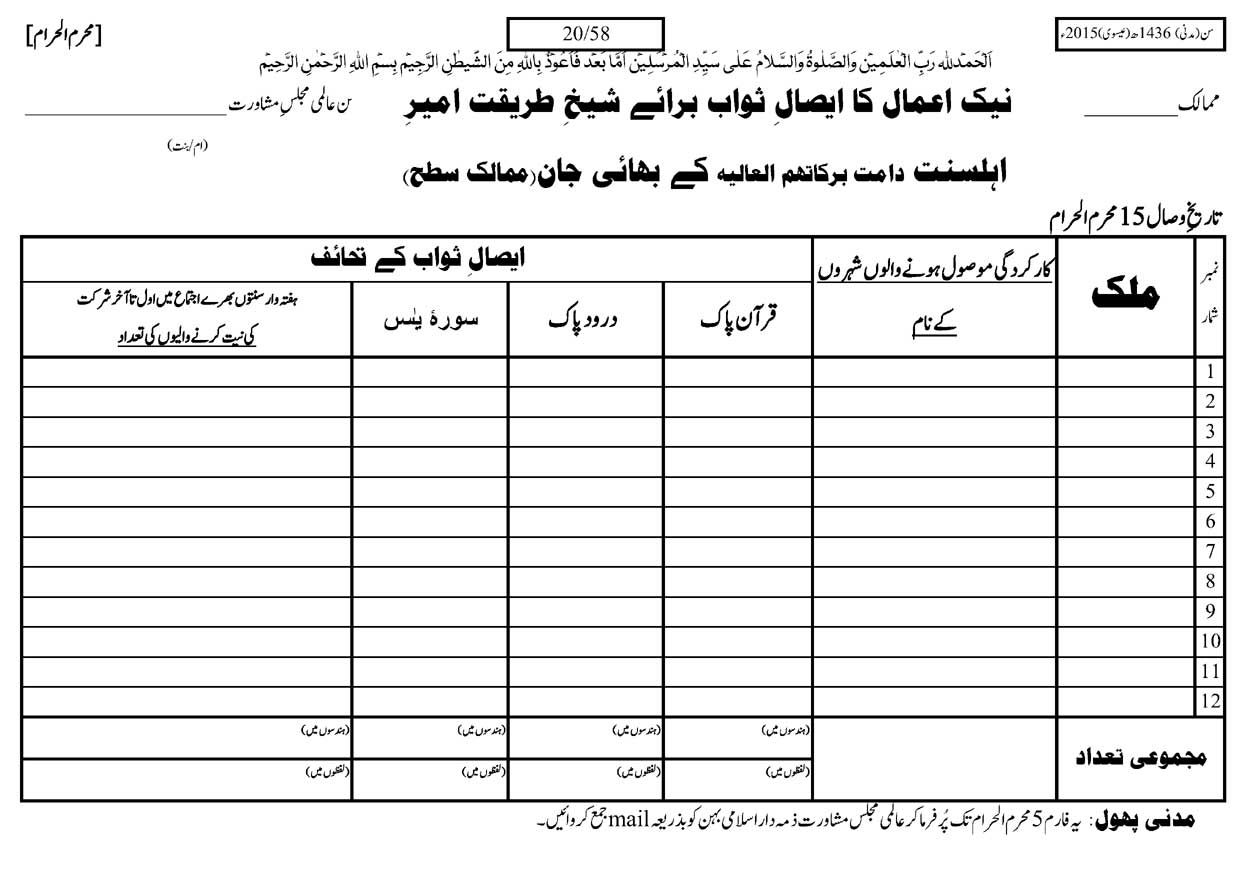 سن(مدنی) 1436ھ(عیسوی)2015ء
20/58
[محرم الحرام]
اَلْحَمْدُلِلّٰہِ رَبِّ الْعٰلَمِیْنَ وَالصَّلٰوۃُ وَالسَّلَامُ عَلٰی سَیِّدِ الْمُرْسَلِیْنَ اَمَّا بَعْدُ فَاَعُوْذُ بِاللّٰہِ مِنَ الشَّیْطٰنِ الرَّجِیْمِ بِسْمِ اللّٰہِ الرَّحْمٰنِ الرَّحِیْمِ
ممالک__________ نیک اعمال کا ایصالِ ثواب برائے شیخِ طریقت امیرِ ن عالمی مجلسِ مشاورت____________________
(ام/بنت)
اہلسنت دامت برکاتہم العالیہ کے بھائی جان(ممالک سطح)
تاریخِ وصال 15 محرم الحرام
نمبر شمار
ملک
کارکردگی موصول ہونے والوں شہروں
کے نام
ایصالِ ثواب کے تحائف
قرآن پاک
درود پاک
سورۂ یٰسٓ
ہفتہ وار سنتوں بھرے اجتماع میں اول تا آخر شرکت
کی نیت کرنے والیوں کی تعداد
1
2
3
4
5
6
7
8
9
10
11
12
مجموعی تعداد
(ہندسوں میں) (ہندسوں میں) (ہندسوں میں) (ہندسوں میں)
(لفظوں میں) (لفظوں میں) (لفظوں میں) (لفظوں میں)
مدنی پھول: یہ فارم 5 محرم الحرام تک پُر فرما کر عالمی مجلس مشاورت ذمہ دار اسلامی بہن کو بذریعہ mail جمع کروائیں۔